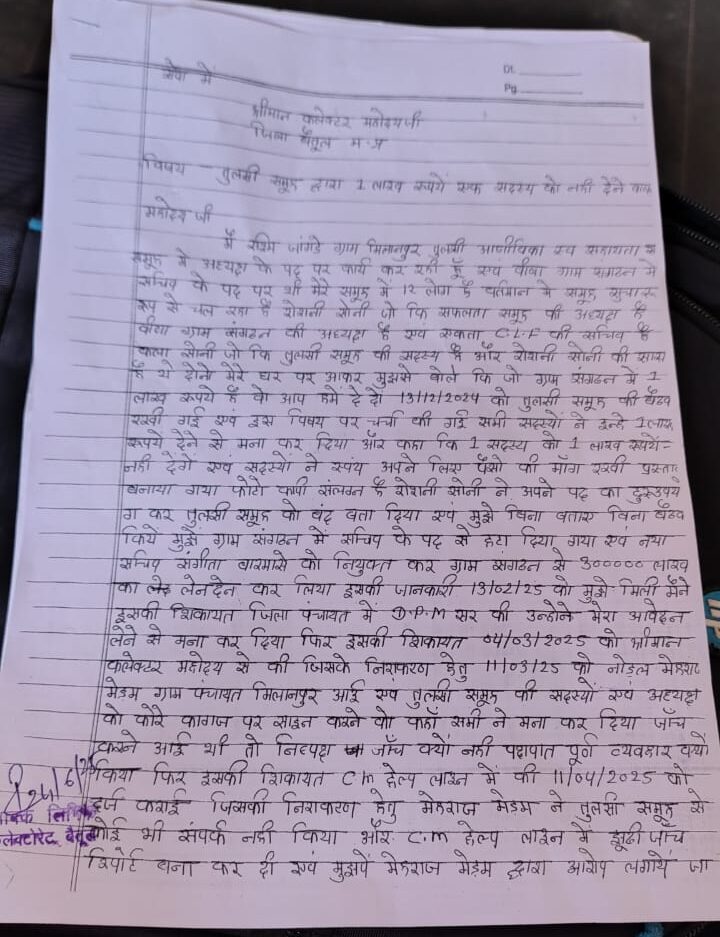 Dt.
Pg.
सेवा में
श्रीमान कलेक्टर महोदय जी
जिला बैतूल म.प्र
विषय - तुलसी समूह द्वारा 1 लाख रूपये एक सदस्य को नही देने
महोदय जी
मैं रश्मि जांगडे ग्राम मिलानपुर तुलसी आजीविका स्व सहायता
समूह मे अध्यक्ष के पद पर कार्य कर रही हूँ एवं ग्राम संगठन मे
सचिव के पद पर थी मेरे समूह में 12 लोग है वर्तमान मे समूह सुचारू
रूप से चल रहा है रोशनी सोनी जो कि सफलता समूह की अध्यक्ष है
ग्राम संगठन की अध्यक्ष है एवं एकता C.L.F की सचिव है
कला सोनी जो कि तुलसी समूह की सदस्य है और रोशनी सोनी की सास
है ये दोनो मेरे घर पर आकर मुझसे बोले कि जो ग्राम संगठन मे 1
लाख रूपये है वो आप हमें दे दो 13/12/2024 को तुलसी समूह की बैठक
रखी गई एवं इस विषय पर चर्चा की गई सभी सदस्यों ने उन्हे 1 लाख
रूपये देने से मना कर दिया और कहा कि 1 सदस्य को 1 लाख रूपये-
नही देंगे एवं सदस्यों ने स्वंय अपने लिए पैसो की माँग रखी प्रस्ताव
बनाया गया फोटो कापी संलग्न है रोशनी सोनी ने अपने पद का दुरुउपयो
ग कर तुलसी समूह को बंद बता दिया एवं मुझे बिना बताए बिना बैठक
किये मुझे ग्राम संगठन में सचिव के पद से हटा दिया गया एवं नया
सचिव संगीता बारमासे को नियुक्त कर ग्राम संगठन से 300000 लाख
का लेनदेन कर लिया इसकी जानकारी 13/02/25 को मुझे मिली मैंने
इसकी शिकायत जिला पंचायत में D.P.M सर की उन्होने मेरा आवेदन
लेने से मना कर दिया फिर इसकी शिकायत 04/03/2025 को श्रीमान
कलेक्टर महोदय से की जिसके निराकरण हेतु 11/03/25 को नोडल मेहराज
मेडम ग्राम पंचायत मिलानपुर आई एवं तुलसी समूह की सदस्यों एवं अध्यक्ष
को कोरे कागज पर साइन करने को कहाँ सभी ने मना कर दिया जाँच
करने आई थी तो निष्पक्ष जाँच क्यों नही पक्षपात पूर्ण व्यवहार क्यों
किया फिर इसकी शिकायत C.M हेल्प लाइन में की 11/04/2025 को
दर्ज कराई जिसकी निराकरण हेतु मेहराज मेडम ने तुलसी समूह से
कोई भी संपर्क नही किया और C.M हेल्प लाईन में झूठी जाँच
रिपोर्ट बना कर दी एवं मुझपें मेहराज मेडम द्वारा आरोप लगायें जा
कलेक्टोरेट बैतूल